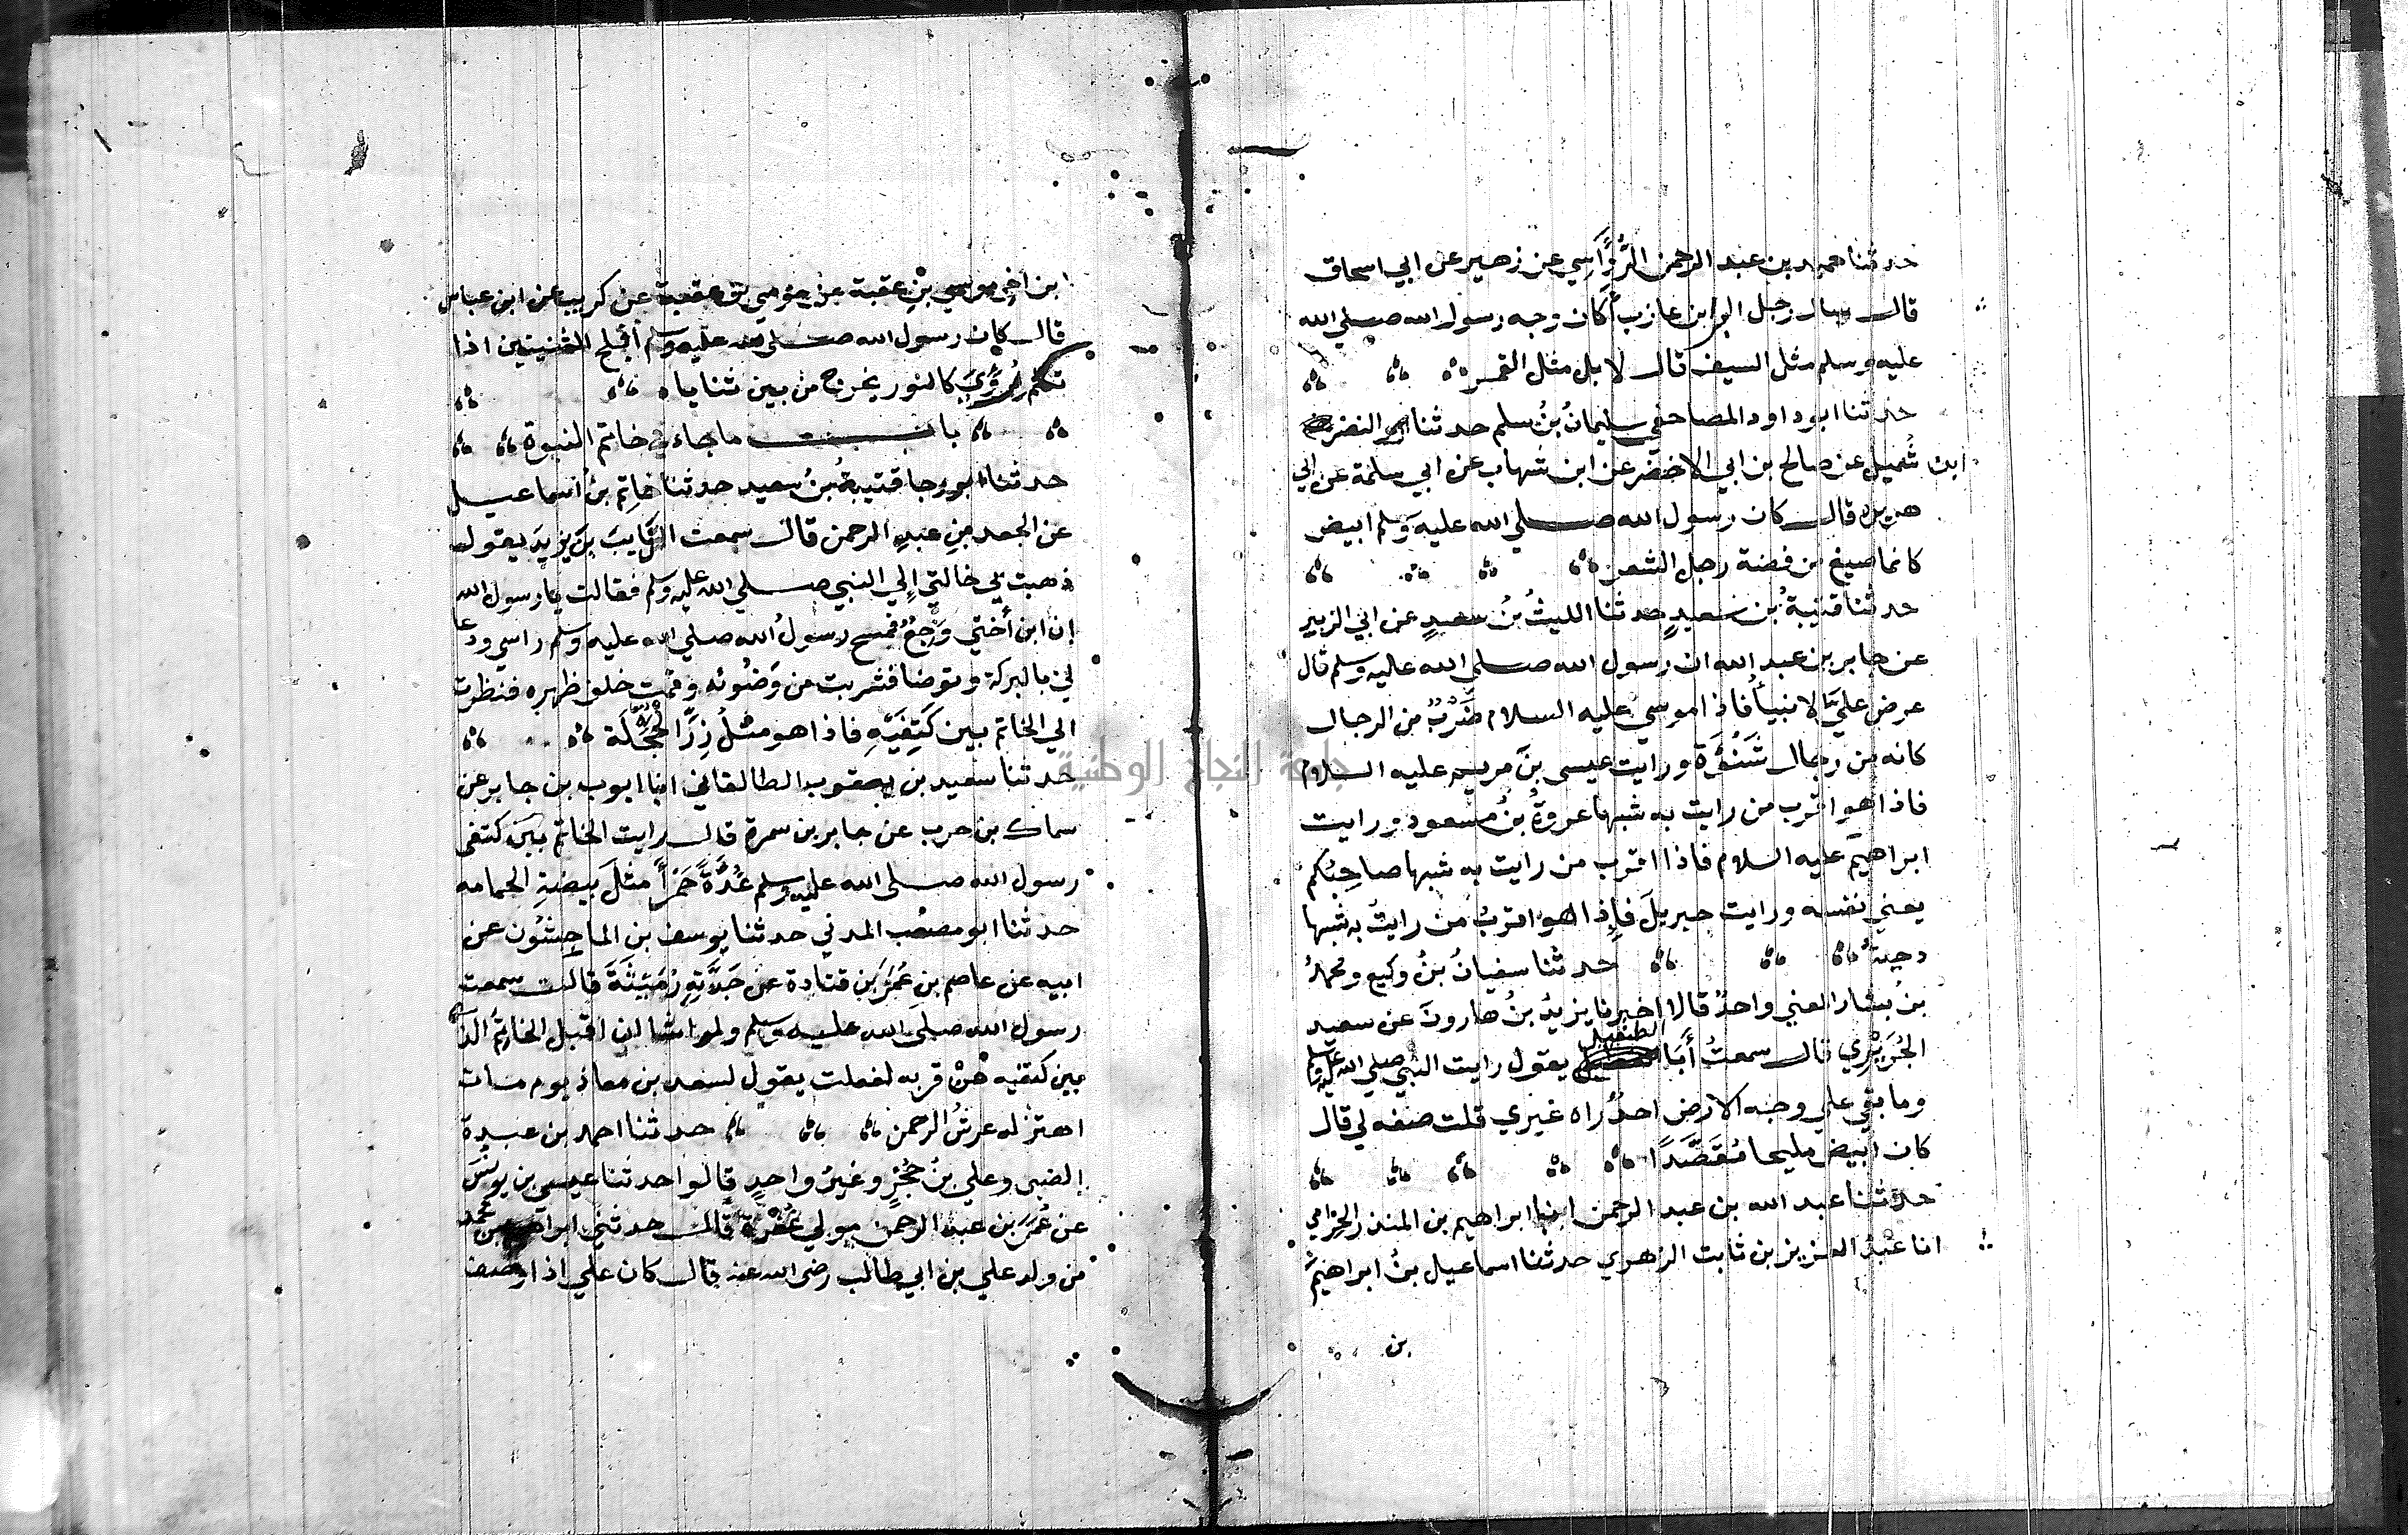 حدثنا حميد بن عبد الرحمن الرُّؤَاسِي عن زهير عن ابي اسحاق
قال سال رجل البرا بن عازب أكان وجه رسول الله صلي الله
عليه وسلم مثل السيف قال لا بل مثل القمر
حدثنا ابو داود المصاحفي سليمانُ بنُ سلم حدثنا النضر
ابن شُميل عن صالح بن ابي الاخضر عن ابن شهاب عن ابي سلمة عن ابي
هريره قال كان رسول الله صلي الله عليه وسلم ابيض
كانما صيغ من فضة رجل الشعر
حدثنا قتيبةُ بن سعيدٍ حدثنا الليثُ بنُ سعيدٍ عن ابي الزبير
عن جابر بن عبد الله ان رسول الله صلي الله عليه وسلم قال
عرض عليَّ الانبيأُ فاذا موسي عليه السلام ضَرْبٌ من الرجال
كانه من رجال شَنُؤَة ورايت عيسي بنَ مريم عليه السلام
فاذا هو اقرب من رايت به شبها عروةُ بنُ مسعود ورايت
ابراهيم عليه السلام فاذا اقرب من رايت به شبها صاحِبُكم
يعني نفسه ورايت جبريلَ فإذا هو اقربُ من رايتُ به شبها
دحيةُ حدثنا سفيانُ بنُ وكيع ومحمدُ
بنُ بشار المعني واحدٌ قالا اخبرنا يزيدُ بنُ هارونَ عن سعيد
الجُرَيْرِي قال سمعتُ أَبَا الطفيل يقول رايت النبي صلي الله عليه وسلم
وما بقي علي وجه الارض احدٌ راه غيري قلت صفه لي قال
كان ابيض مليحا مُقَصَّدًا
حدثنا عبد الله بن عبد الرحمن انبا ابراهيم بن المنذر الحِزامي
انا عبدُ العزيز بن ثابت الزهري حدثنا اسماعيل بنُ ابراهيمَ
بن
ابن اخي موسي بنِ عقبة عن موسي بن عقبة عن كريب عن ابن عباس
قال كان رسول الله صلي الله عليه وسلم أفلج الثنيتين اذا
تكلم رُؤِيَ كالنور يخرج من بين ثناياه
باب ما جاء في خاتم النبوة
حدثنا ابو رجا قتيبةُ بنُ سعيد حدثنا حاتِم بنُ اسماعيل
عن الجعد بنِ عبدِ الرحمن قال سمعت السَّايبَ بنَ يزيدَ يقول
ذهبت بي خالتي إلي النبي صلي الله عليه وسلم فقالت يا رسول الله
إن ابن أختي وَجِعٌ فمسح رسولُ الله صلي الله عليه وسلم راسي ودعا
لي بالبركة وتوضا فشربت من وَضُوئه وقمت خلف ظهره فنظرت
الي الخاتم بين كَتِفَيْهِ فاذا هو مثلُ زِرِّ الحَجَلَة
حدثنا سعيد بن يعقوب الطالقاني انبا ايوب بن جابر عن
سماك بن حرب عن جابر بن سمرة قال رايت الخاتم بين كتفي
رسول الله صلي الله عليه وسلم غُدَّةً حَمْرَأ مثلَ بيضةِ الحمامه
حدثنا ابو مصعب المدني حدثنا يوسف بن الماجِشُون عن
ابيه عن عاصم بن عُمَرَ بنِ قتادة عن جَدَّتِهِ رُمَيْثَةَ قالت سمعت
رسول الله صلي الله عليه وسلم ولو اشا ان اقبل الخاتِمَ الذي
بين كتفيه مِنْ قربه لفعلت يقول لسعد بن معاذ يوم مات
اهتز له عرشُ الرحمن حدثنا احمد بن عبدة
الضبي وعلي بنُ حُجْرٍ وغيرُ واحدٍ قالوا حدثنا عيسي بن يونُسَ
عن عُمَرَ بن عبد الرحمن مولي غُفْرَةَ قال حدثني ابراهيم بن محمد
من ولد علي بن ابي طالب رضي الله عنه قال كان علي اذا وصف
جامعة النجاح الوطنية